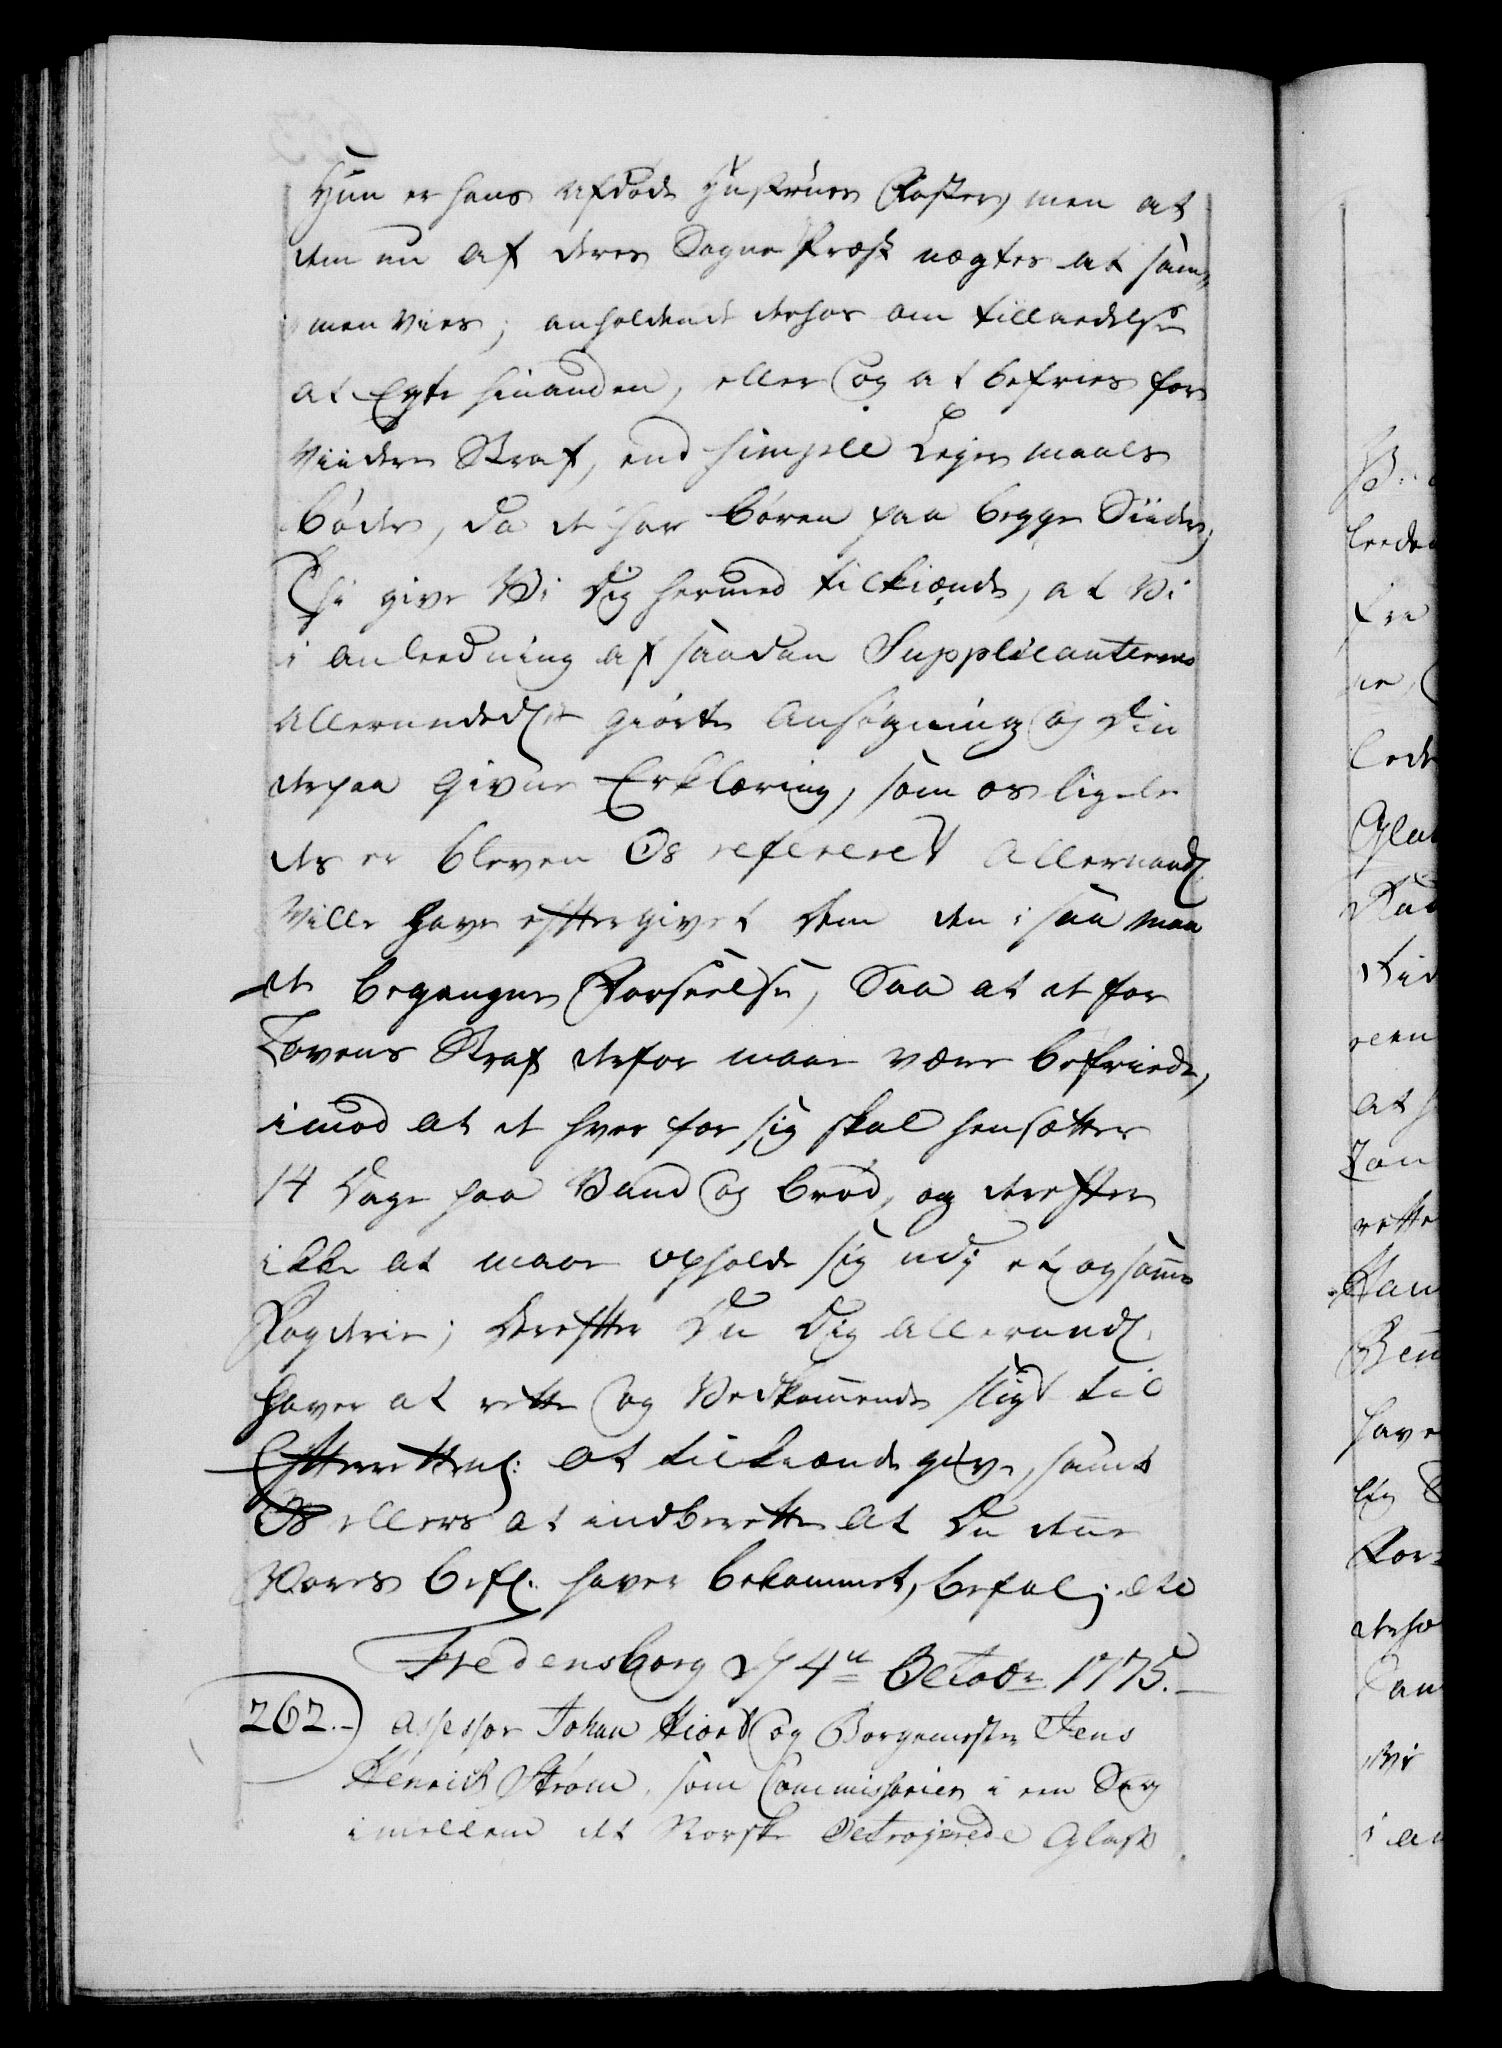 Hun er hans Afdøde Hustrues Faster, men at
dem nu af deres Sogne Præst nægtes at sam-
men Vies; anholdende derhos om tilladelse
at Egte hinanden, eller og at befries for
Viidere Straf, end simple Lejermaals
bøder, da de har Børen paa begge Siider;
Thi give Vi Dig hermed tilkiænde, at Vi
i anleedning af saadan Supplicanternes
Allerunderd. giørte Ansøgning og Din
derpaa Givne Erklæring, som os ligele-
des er bleven Os refereret Allernaad.
Ville have eftergivet dem den i saa maa
de begangne Forseelse, Saa at de for
Lovens Straf derfor maae være befriede,
imod at de hver for sig skal hensættes
14 Dage paa Vand og brød, og derefter
ikke at maae opholde sig udj et og samme
Fogderie; Derefter Du Dig Allerund.
haver at rette og Vedkommende sligt til
Efterretning: at tilkiænde give, samt
Os ellers at indberette at Du denne
Vores bef. haver bekommet, befal: etc
Fredensborg d 4de Octobr. 1775.
262. Assessor Johan Hiort og Borgemester Jens
Henrich Strøm, som Commissarier i een Sag
imellem det Norske Octrojerede Glass